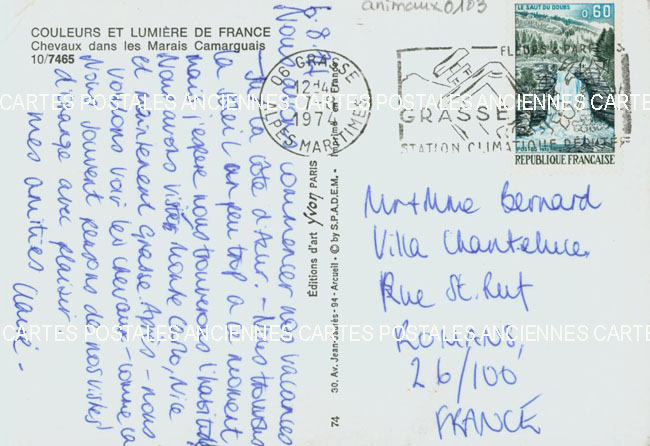 animaux0103
COULEURS ET LUMIÈRE DE FRANCE
Chevaux dans les Marais Camarguais
10/7465
6.8.74
Nous avons commencer nos vacances
à la Côte d'Azur. - Nous trouvons
le soleil un peu trop à moment
mais j'espère nous trouverons l'habitude
Nous avons visitée Monte Carlo, Nice
et maintenant Grasse. Après - nous
voulons voir les chevaux - comme ça
Nous souvent pensons de nos visites
d'échange avec plaisir
mes amitiés
06 GRASSE
12H
7-8
1974
ALPES MARITIMES
FLEURS & PARFUMS
GRASSE
STATION CLIMATIQUE RÉPUTÉE
LE SAUT DU DOUBS
0,60
POSTES
RÉPUBLIQUE FRANÇAISE
Éditions d'art Yvon PARIS - © by S.P.A.D.E.M. - Imprimé en France
30, Av. Jean-Jaurès - 94 - Arcueil
74
Mr + Mme Bernard
Villa Chanteluce
Rue St. Ruf
ROMANS,
26/100
FRANCE
CARTES POSTALES ANCIENNES CARTES POSTALES ANCIENNES CARTE
CARTES POSTALES ANCIENNES CARTES POSTALES ANCIENNES CARTE